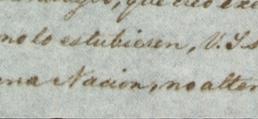 que creo exe
no lo estubiesen, V.S.
una Nacion, no alter